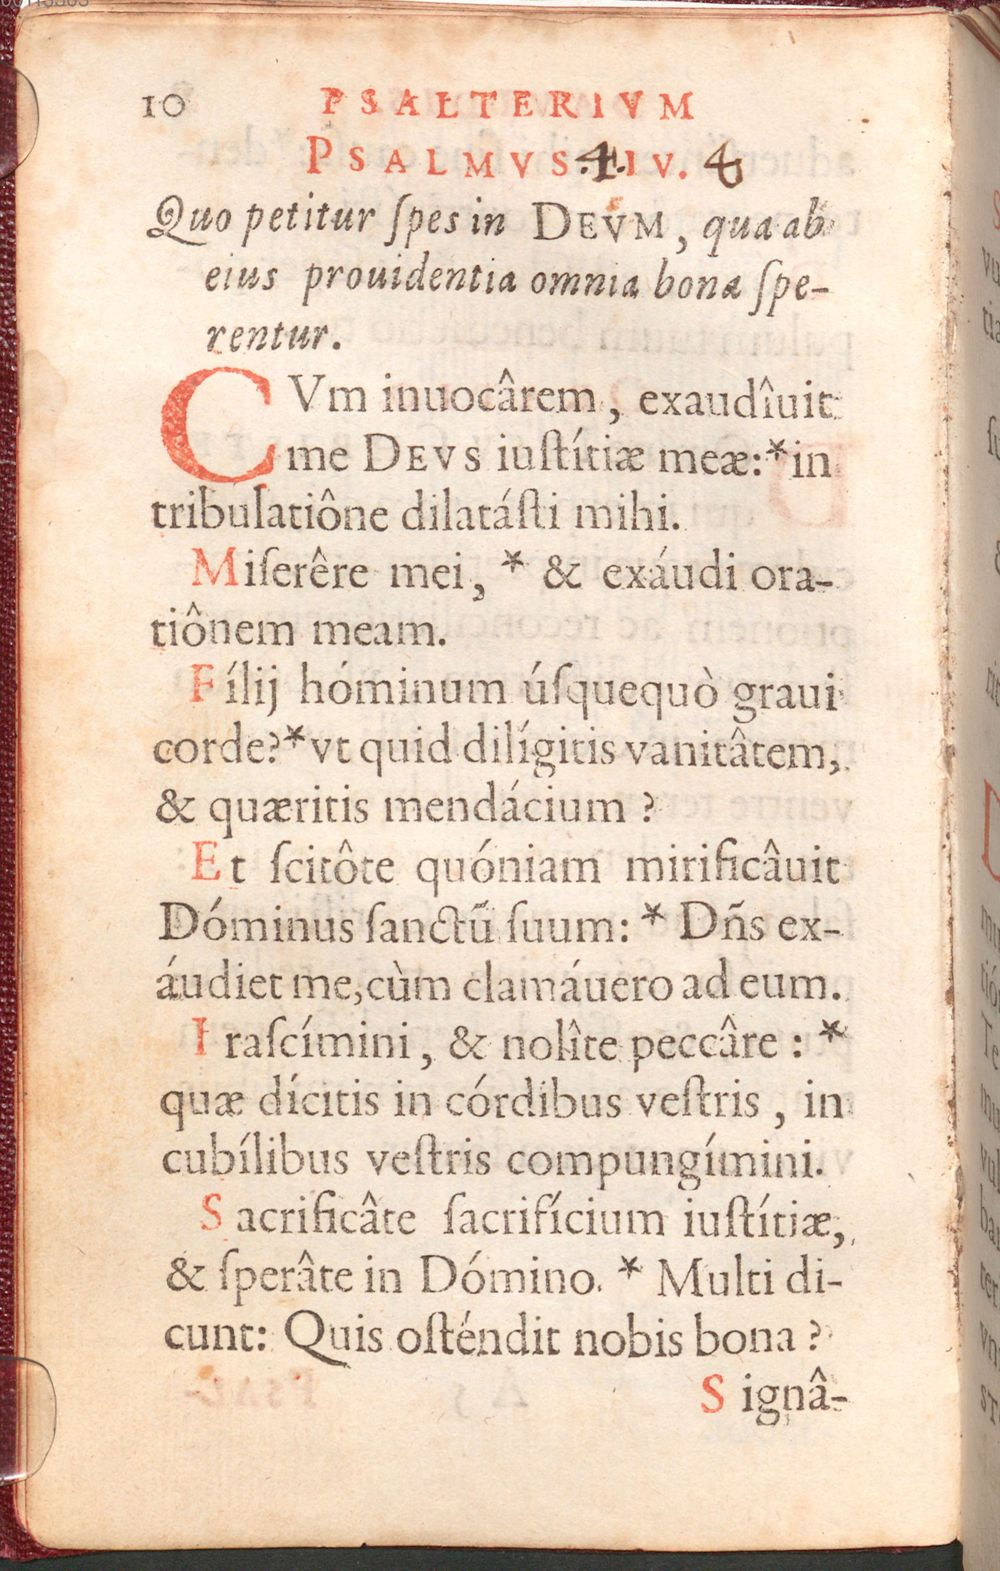 10 PSALTERIVM
PSALMVS .4. IV. 4
Quo petitur ſpes in DEVM, qua ab
eius prouidentia omnia bona ſpe-
rentur.
CVm inuocârem, exaudîuit
me DEVS iuſtítiæ meæ:*in
tribulatiône dilatáſti mihi.
Miſerêre mei, * & exáudi ora-
tiônem meam.
Fílij hóminum úſquequò graui
corde?*vt quid dilígitis vanitâtem,
& quæritis mendácium ?
Et ſcitôte quóniam mirificâuit
Dóminus ſanctũ ſuum: * Dñs ex-
áudiet me,cùm clamáuero ad eum.
Iraſcímini, & nolîte peccâre : *
quæ dícitis in córdibus veſtris, in
cubílibus veſtris compungímini.
Sacrificâte ſacrifícium iuſtítiæ,
& ſperâte in Dómino. * Multi di-
cunt: Quis oſténdit nobis bona ?
Signâ-